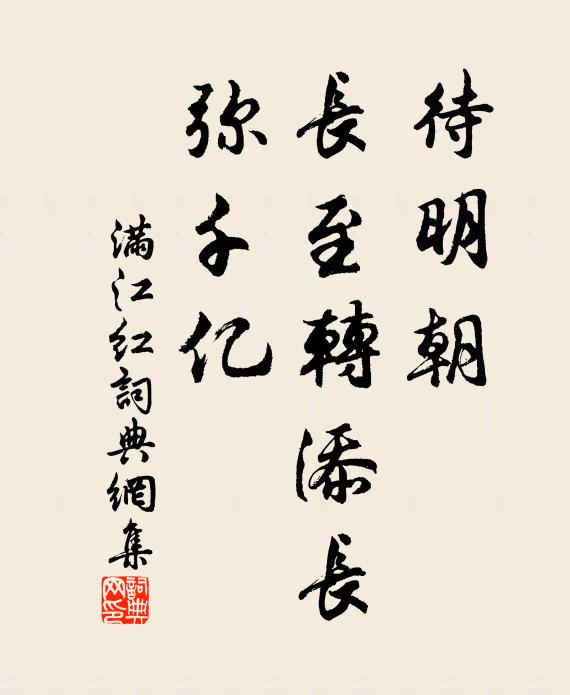 待明朝
長至轉添長
弥千亿
满江红詞典網集
詞典网印